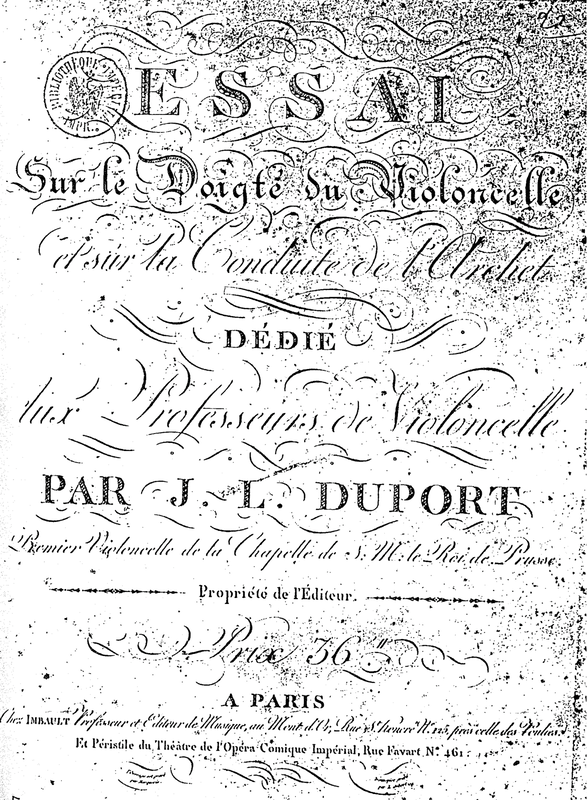 BIBLIOTHEQUE IMPR.
ESSAI
Sur le Doigté du Violoncelle
et sur la Conduite de l'Archet
DÉDIÉ
Aux Professeurs de Violoncelle
PAR J. L. DUPORT
Premier Violoncelle de la Chapelle de S. M. le Roi de Prusse.
Propriété de l'Éditeur.
Prix 36
A PARIS
Chez IMBAULT Professeur et Editeur de Musique, au Mont d'Or, Rue St. honoré N.° 125, près celle des Poulies.
Et Péristile du Théâtre de l'Opéra Comique Impérial, Rue Favart N.° 461